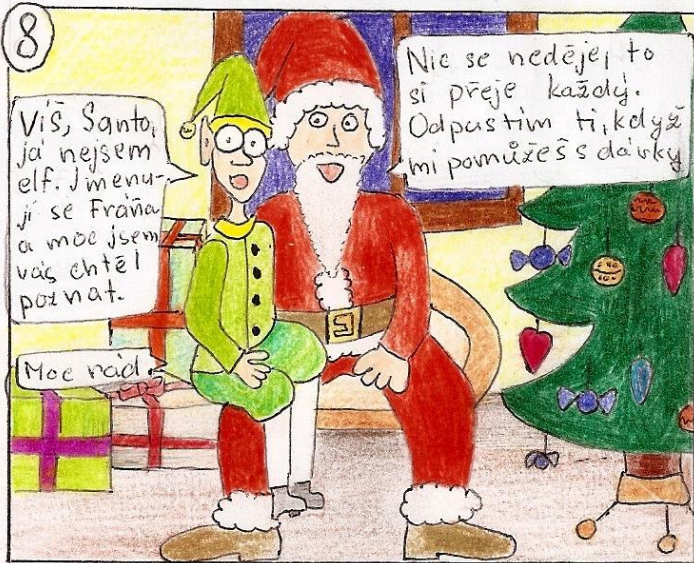 8
Víš, Santo,
já nejsem
elf. Jmenu-
ji se Fráňa
a moc jsem
vás chtěl
poznat.
Nic se neděje, to
si přeje každý.
Odpustím ti, když
mi pomůžeš s dárky
Moc rád.